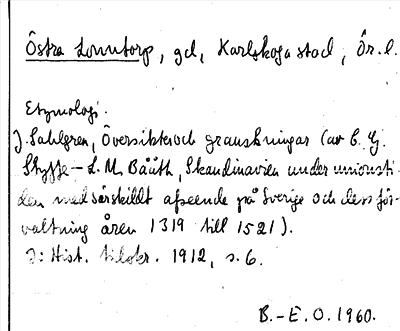 Östra Lonntorp, gd, Karlskoga stad, Ör. l.
Etymologi.
J. Sahlgren, Översikter och granskningar (av C. G.
Styffe – L. M. Bååth, Skandinavien under unionsti-
den med särskildt afseende på Sverige och dess för-
valtning åren 1319 till 1521).
I: Hist. tidskr. 1912, s. 6.
B.-E. O. 1960.